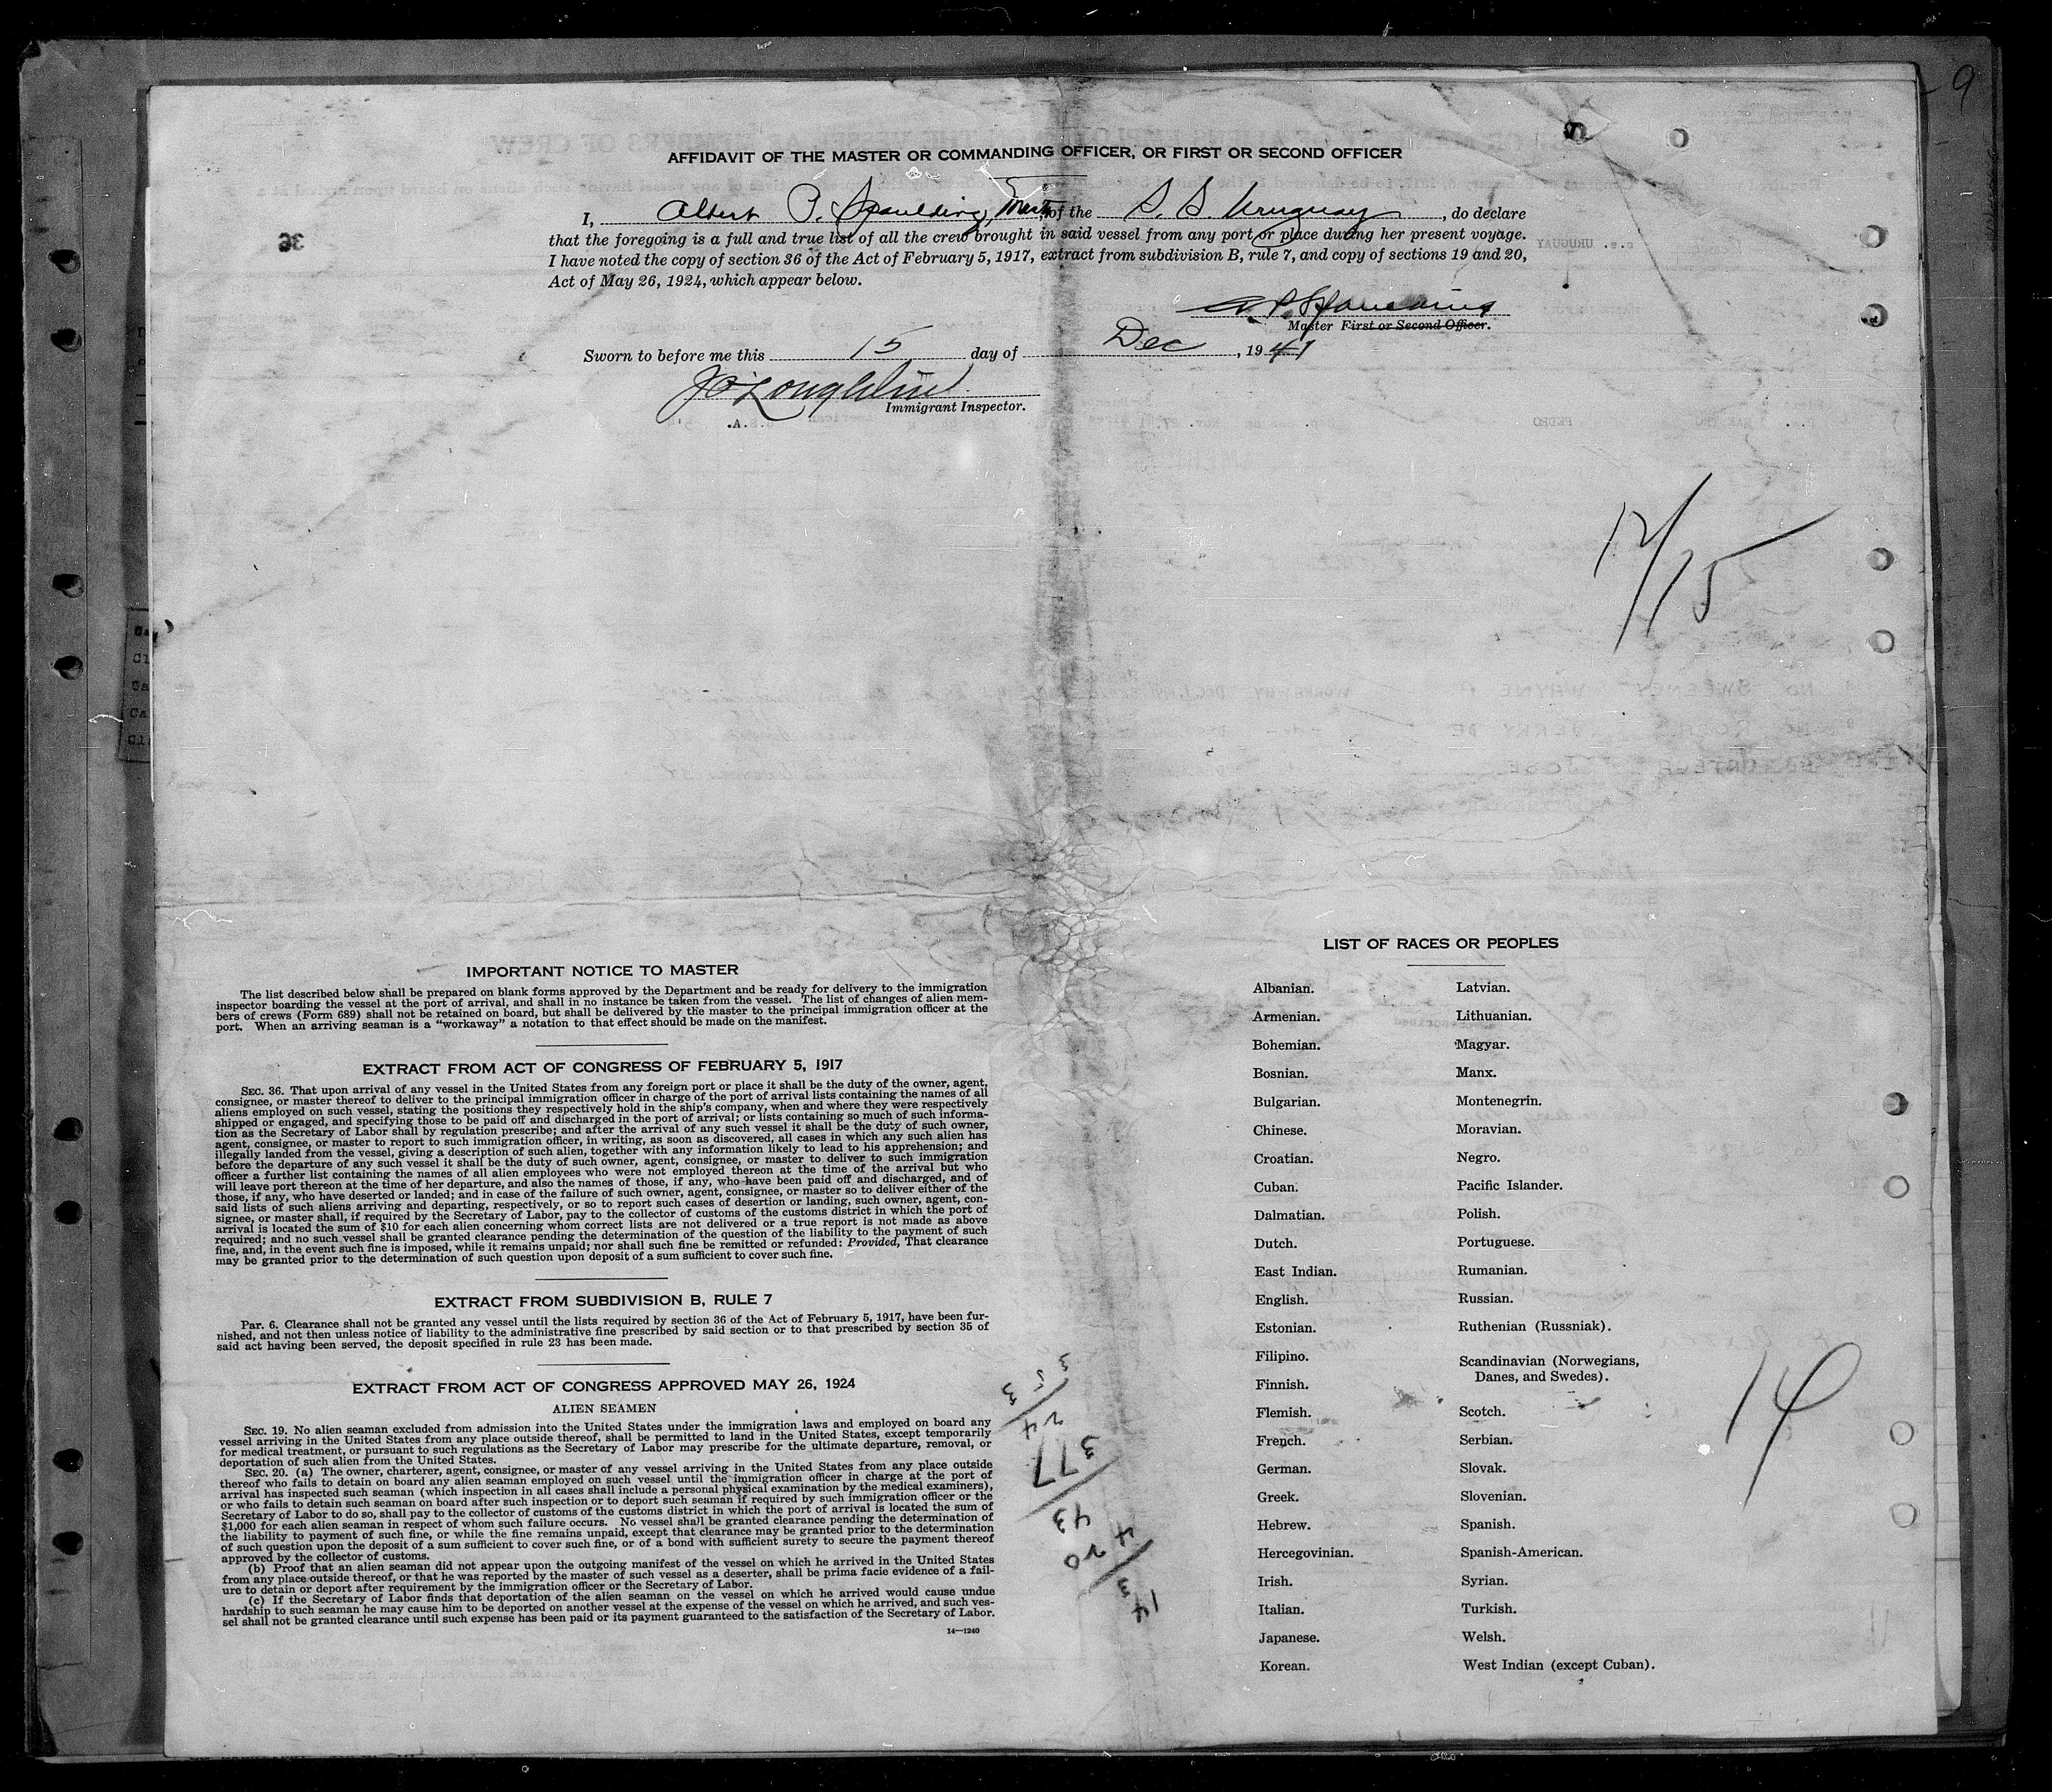 9
AFFIDAVIT OF THE MASTER OR COMMANDING OFFICER, OR FIRST OR SECOND OFFICER
I, Albert P. Spaulding, of the S. S. Uruguay, do declare
that the foregoing is a full and true list of all the crew brought in said vessel from any port or place during her present voyage.
I have noted the copy of section 36 of the Act of February 5, 1917, extract from subdivision B, rule 7, and copy of sections 19 and 20,
Act of May 26, 1924, which appear below.
A. P. Spaulding
Master First or Second Officer.
Sworn to before me this 15 day of Dec, 1941
J O'Loughlin
Immigrant Inspector.
12/15
IMPORTANT NOTICE TO MASTER
The list described below shall be prepared on blank forms approved by the Department and be ready for delivery to the immigration
inspector boarding the vessel at the port of arrival, and shall in no instance be taken from the vessel. The list of changes of alien mem-
bers of crews (Form 689) shall not be retained on board, but shall be delivered by the master to the principal immigration officer at the
port. When an arriving seaman is a "workaway" a notation to that effect should be made on the manifest.
EXTRACT FROM ACT OF CONGRESS OF FEBRUARY 5, 1917
SEC. 36. That upon arrival of any vessel in the United States from any foreign port or place it shall be the duty of the owner, agent,
consignee, or master thereof to deliver to the principal immigration officer in charge of the port of arrival lists containing the names of all
aliens employed on such vessel, stating the positions they respectively hold in the ship's company, when and where they were respectively
shipped or engaged, and specifying those to be paid off and discharged in the port of arrival; or lists containing so much of such informa-
tion as the Secretary of Labor shall by regulation prescribe; and after the arrival of any such vessel it shall be the duty of such owner,
agent, consignee, or master to report to such immigration officer, in writing, as soon as discovered, all cases in which any such alien has
illegally landed from the vessel, giving a description of such alien, together with any information likely to lead to his apprehension; and
before the departure of any such vessel it shall be the duty of such owner, agent, consignee, or master to deliver to such immigration
officer a further list containing the names of all alien employees who were not employed thereon at the time of the arrival but who
will leave port thereon at the time of her departure, and also the names of those, if any, who have been paid off and discharged, and of
those, if any, who have deserted or landed; and in case of the failure of such owner, agent, consignee, or master so to deliver either of the
said lists of such aliens arriving and departing, respectively, or so to report such cases of desertion or landing, such owner, agent, con-
signee, or master shall, if required by the Secretary of Labor, pay to the collector of customs of the customs district in which the port of
arrival is located the sum of $10 for each alien concerning whom correct lists are not delivered or a true report is not made as above
required; and no such vessel shall be granted clearance pending the determination of the question of the liability to the payment of such
fine, and, in the event such fine is imposed, while it remains unpaid; nor shall such fine be remitted or refunded: Provided, That clearance
may be granted prior to the determination of such question upon deposit of a sum sufficient to cover such fine.
EXTRACT FROM SUBDIVISION B, RULE 7
Par. 6. Clearance shall not be granted any vessel until the lists required by section 36 of the Act of February 5, 1917, have been fur-
nished, and not then unless notice of liability to the administrative fine prescribed by said section or to that prescribed by section 35 of
said act having been served, the deposit specified in rule 23 has been made.
EXTRACT FROM ACT OF CONGRESS APPROVED MAY 26, 1924
ALIEN SEAMEN
SEC. 19. No alien seaman excluded from admission into the United States under the immigration laws and employed on board any
vessel arriving in the United States from any place outside thereof, shall be permitted to land in the United States, except temporarily
for medical treatment, or pursuant to such regulations as the Secretary of Labor may prescribe for the ultimate departure, removal, or
deportation of such alien from the United States.
SEC. 20. (a) The owner, charterer, agent, consignee, or master of any vessel arriving in the United States from any place outside
thereof who fails to detain on board any alien seaman employed on such vessel until the immigration officer in charge at the port of
arrival has inspected such seaman (which inspection in all cases shall include a personal physical examination by the medical examiners),
or who fails to detain such seaman on board after such inspection or to deport such seaman if required by such immigration officer or the
Secretary of Labor to do so, shall pay to the collector of customs of the customs district in which the port of arrival is located the sum of
$1,000 for each alien seaman in respect of whom such failure occurs. No vessel shall be granted clearance pending the determination of
the liability to the payment of such fine, or while the fine remains unpaid, except that clearance may be granted prior to the determination
of such question upon the deposit of a sum sufficient to cover such fine, or of a bond with sufficient surety to secure the payment thereof
approved by the collector of customs.
(b) Proof that an alien seaman did not appear upon the outgoing manifest of the vessel on which he arrived in the United States
from any place outside thereof, or that he was reported by the master of such vessel as a deserter, shall be prima facie evidence of a fail-
ure to detain or deport after requirement by the immigration officer or the Secretary of Labor.
(c) If the Secretary of Labor finds that deportation of the alien seaman on the vessel on which he arrived would cause undue
hardship to such seaman he may cause him to be deported on another vessel at the expense of the vessel on which he arrived, and such ves-
sel shall not be granted clearance until such expense has been paid or its payment guaranteed to the satisfaction of the Secretary of Labor.
14—1240
353
24
377
43
420
LIST OF RACES OR PEOPLES
Albanian.
Armenian.
Bohemian.
Bosnian.
Bulgarian.
Chinese.
Croatian.
Cuban.
Dalmatian.
Dutch.
East Indian.
English.
Estonian.
Filipino.
Finnish.
Flemish.
French.
German.
Greek.
Hebrew.
Hercegovinian.
Irish.
Italian.
Japanese.
Korean.
Latvian.
Lithuanian.
Magyar.
Manx.
Montenegrin.
Moravian.
Negro.
Pacific Islander.
Polish.
Portuguese.
Rumanian.
Russian.
Ruthenian (Russniak).
Scandinavian (Norwegians,
Danes, and Swedes).
Scotch.
Serbian.
Slovak.
Slovenian.
Spanish.
Spanish-American.
Syrian.
Turkish.
Welsh.
West Indian (except Cuban).
14